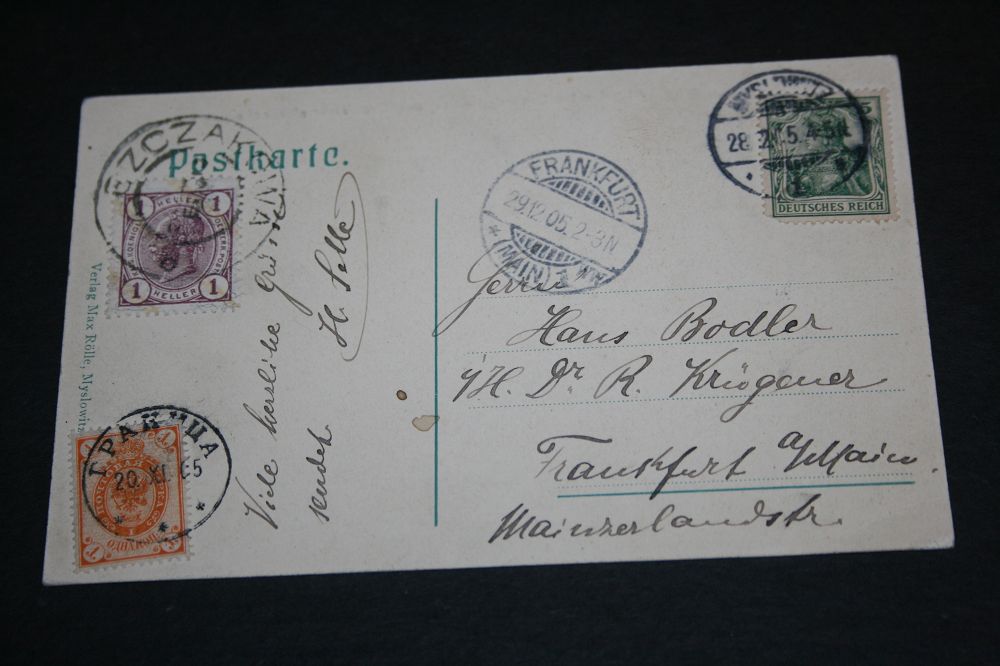 Postkarte.
SZCZAKOWA
1 HELLER 1
1 HELLER 1
Verlag Max Rölle, Myslowitz
ГРАНИЦА
20. XI. 05
Viele herzliche Grüsse
sendet
H. Selle
FRANKFURT
29.12.05. 2-3N
* (MAIN) 1
MYSLOWITZ
28.12.05. 4-5N
5
DEUTSCHES REICH
Herrn
Hans Bodler
i/H. Dr. R. Krügener
Frankfurt a/Main.
Mainzerlandstr.